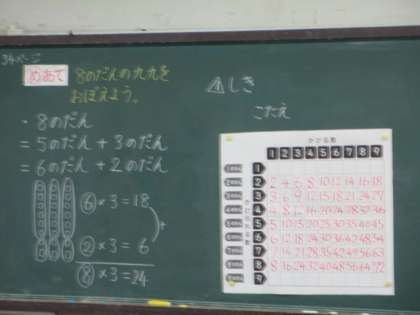 34ページ
めあて 8のだんの九九を
おぼえよう。
・8のだん
=5のだん+3のだん
=6のだん+2のだん
⑥×3=18
②×3=6
+
⑧×3=24
しき
こたえ
かける数
1 2 3 4 5 6 7 8 9
1
2 2 4 6 8 10 12 14 16 18
3 3 6 9 12 15 18 21 24 27
4 4 8 12 16 20 24 28 32 36
5 5 10 15 20 25 30 35 40 45
6 6 12 18 24 30 36 42 48 54
7 7 14 21 28 35 42 49 56 63
8 8 16 24 32 40 48 56 64 72
9